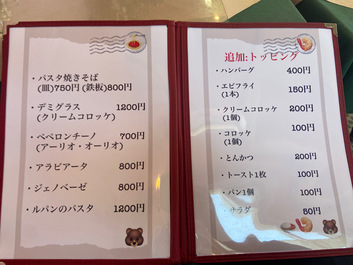 ・パスタ焼きそば
(皿)750円 (鉄板)800円
・デミグラス 1200円
(クリームコロッケ)
・ペペロンチーノ 700円
(アーリオ・オーリオ)
・アラビアータ 800円
・ジェノベーゼ 800円
・ルパンのパスタ 1200円
追加:トッピング
・ハンバーグ 400円
・エビフライ 180円
(1本)
・クリームコロッケ 200円
(1個)
・コロッケ 100円
(1個)
・とんかつ 200円
・トースト1枚 100円
・パン1個 100円
・サラダ 50円